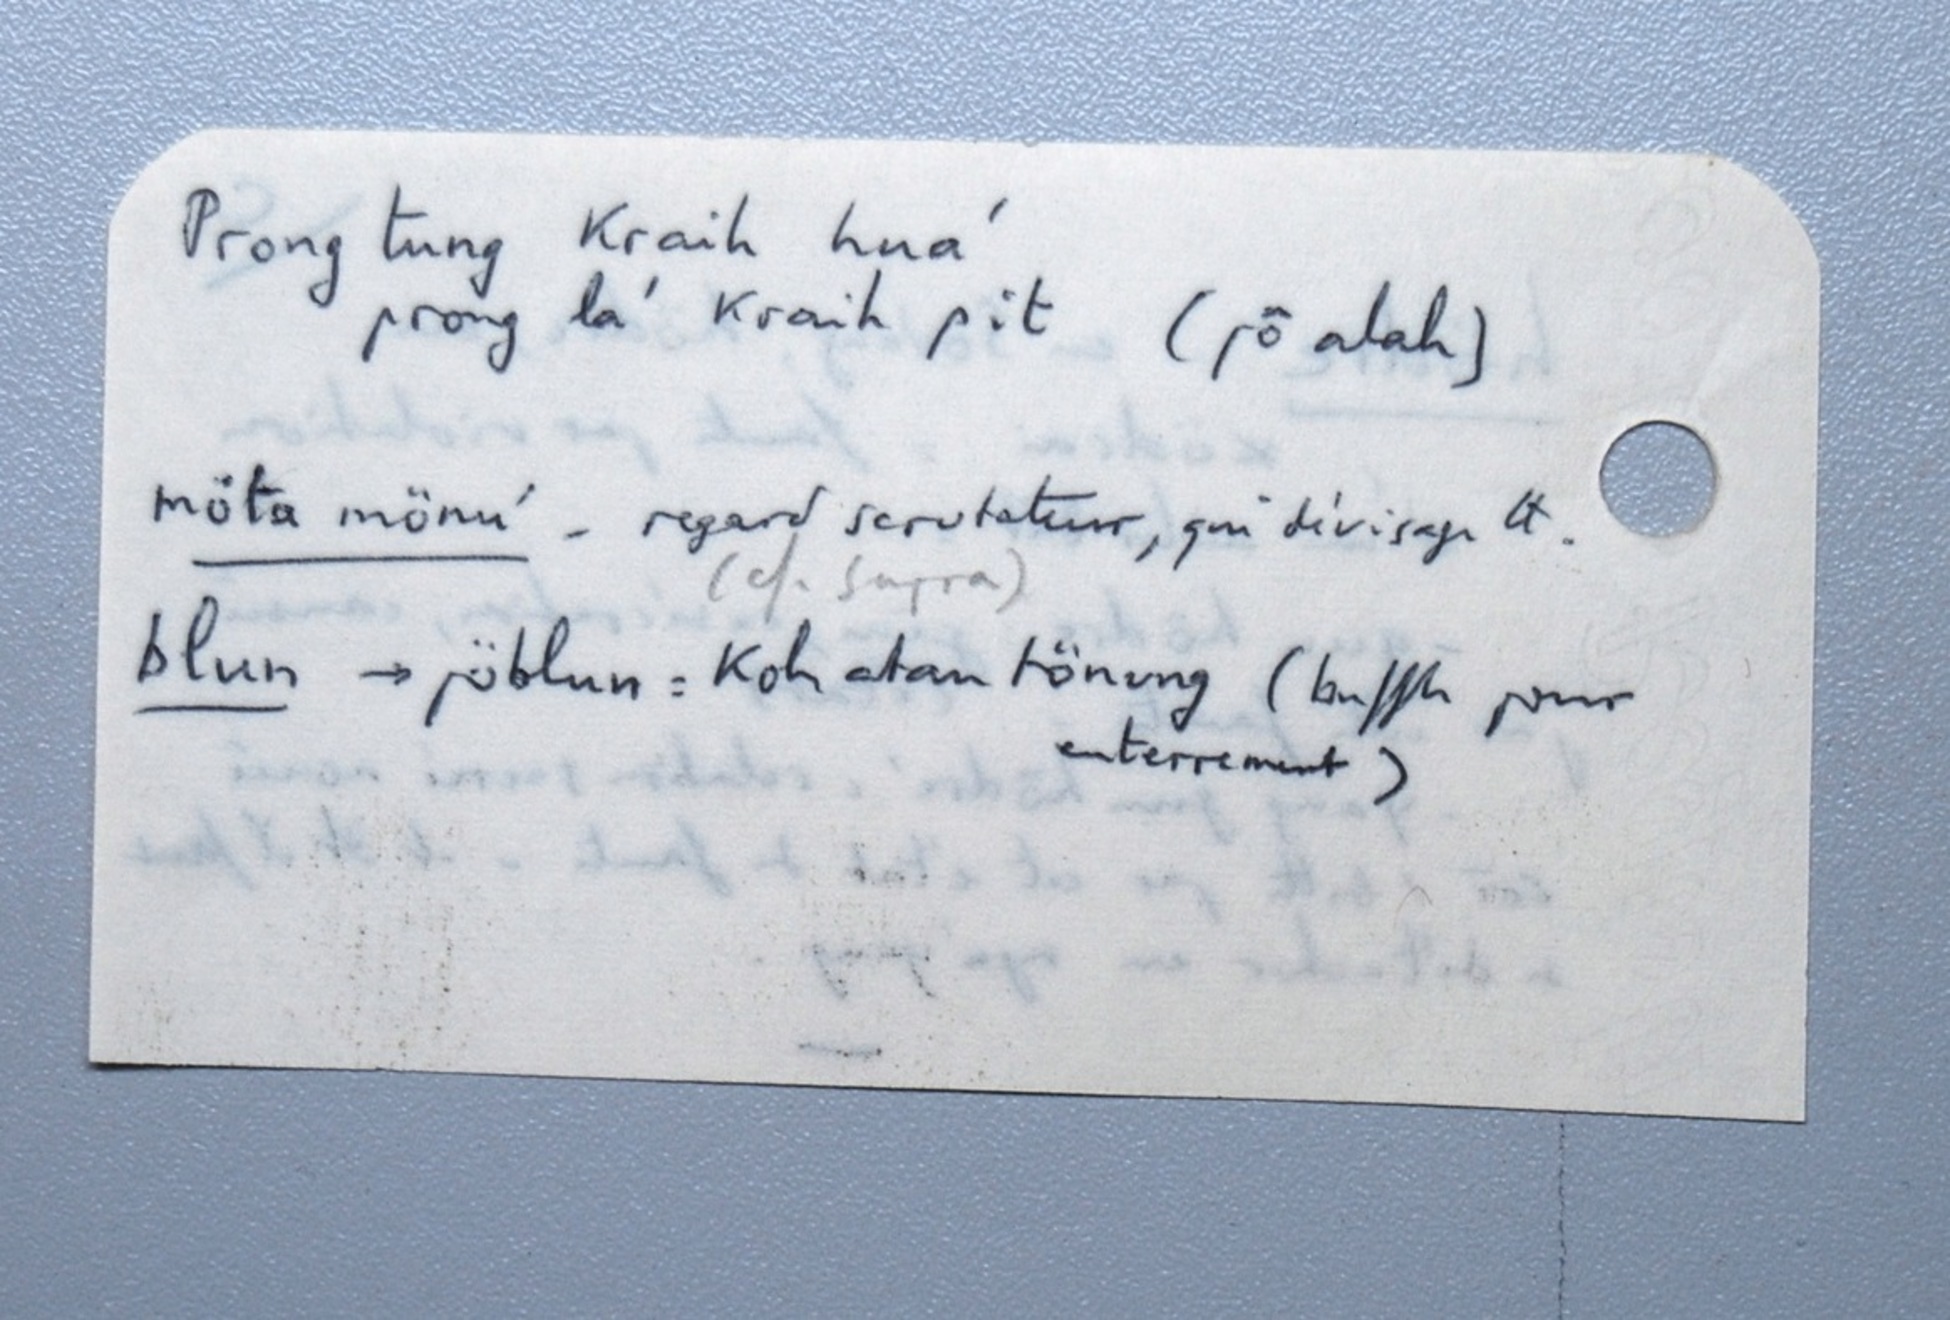 Prong tung Kraih huá
prong lá Kraih pit (pô alah)
möta mönú - regard scrutateur, qui dévisage tt.
(cf. supra)
blun → pöblun = Koh atan tönung (buffle pour
enterrement)